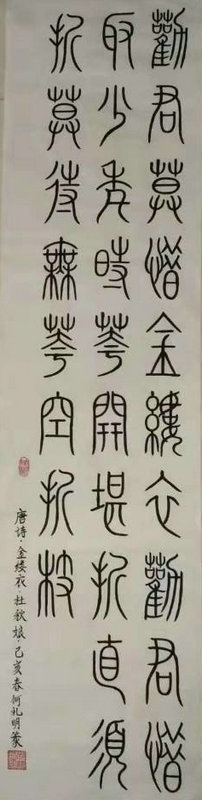 勸君莫惜金縷衣勸君惜
取少年時華開堪折直須
折莫待無華空折枝
唐詩·金缕衣·杜秋娘·己亥春何礼明篆